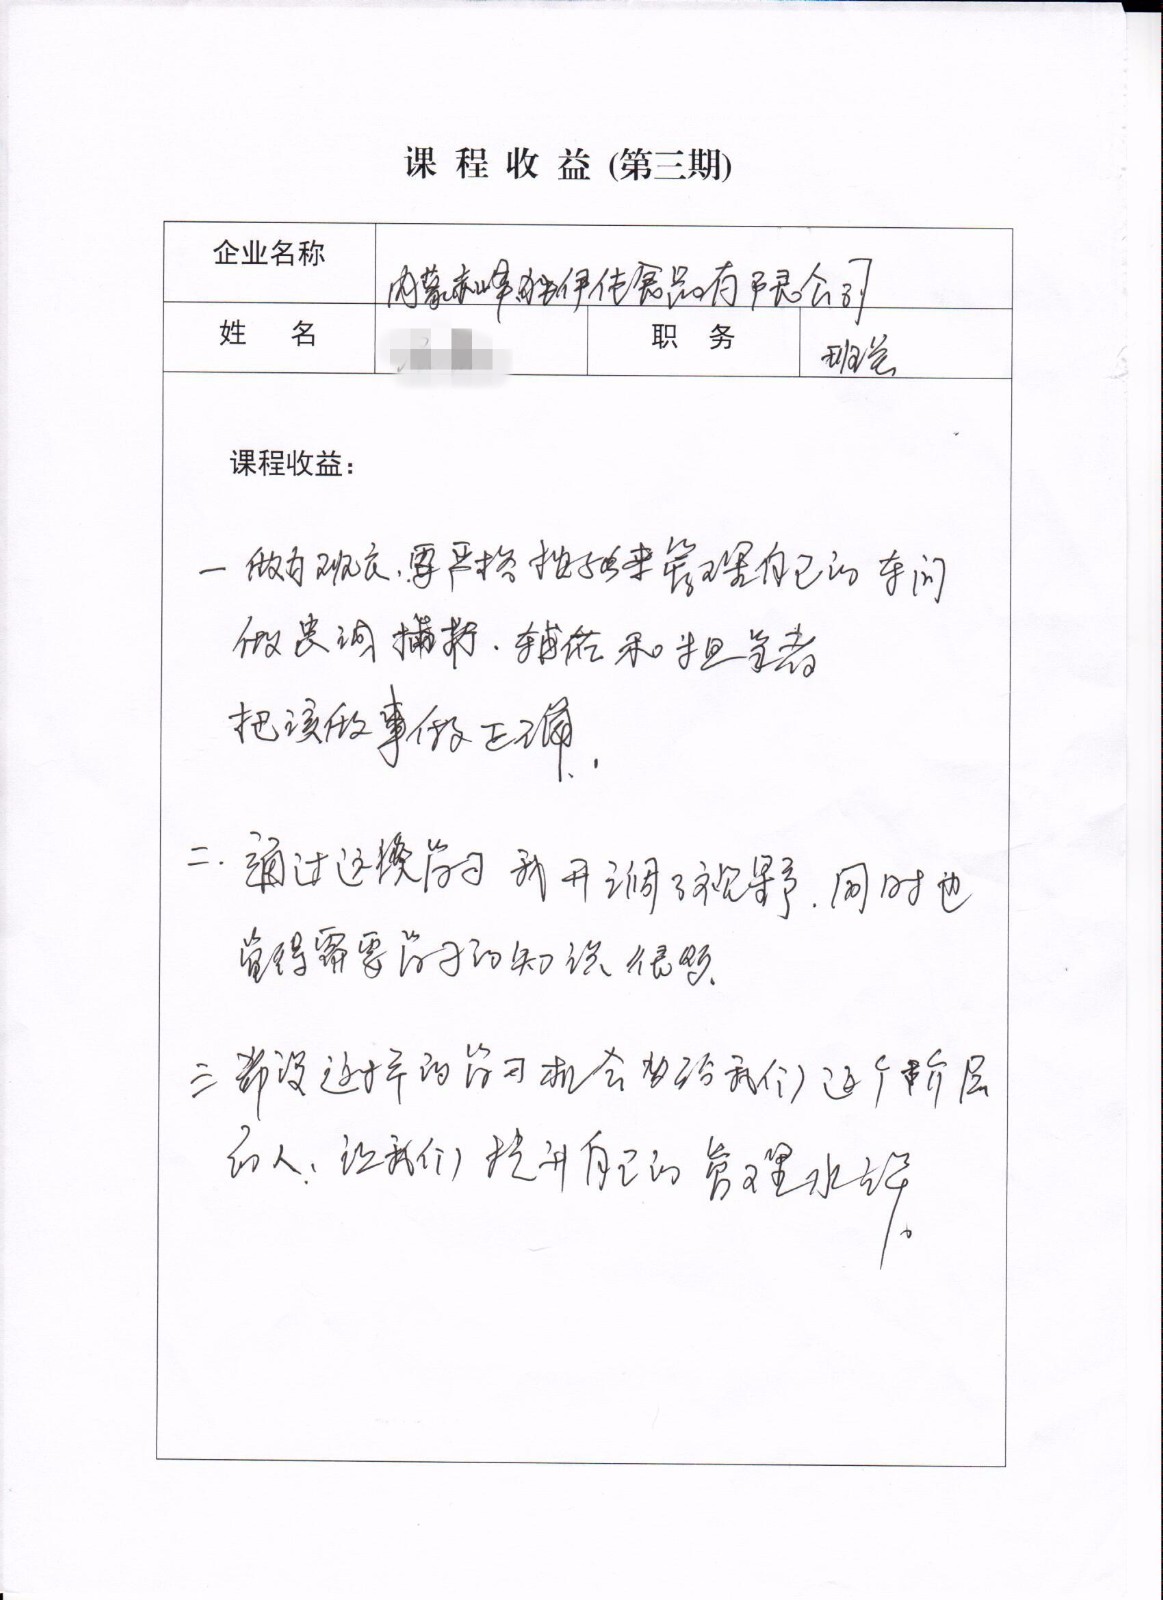 课程收益(第三期)
企业名称 内蒙赤峰伊佳食品有限公司
姓名 职务 班长
课程收益：
一 做为班长、要严格 来管理自己的车间
做 和担当者
把该做事做正确.
二. 通过这 学习 我开阔了视野.同时也
觉得需要学习的知识很多.
三 希望这样的学习机会 给我们这个阶层
的人、让我们提升自己的管理水平。